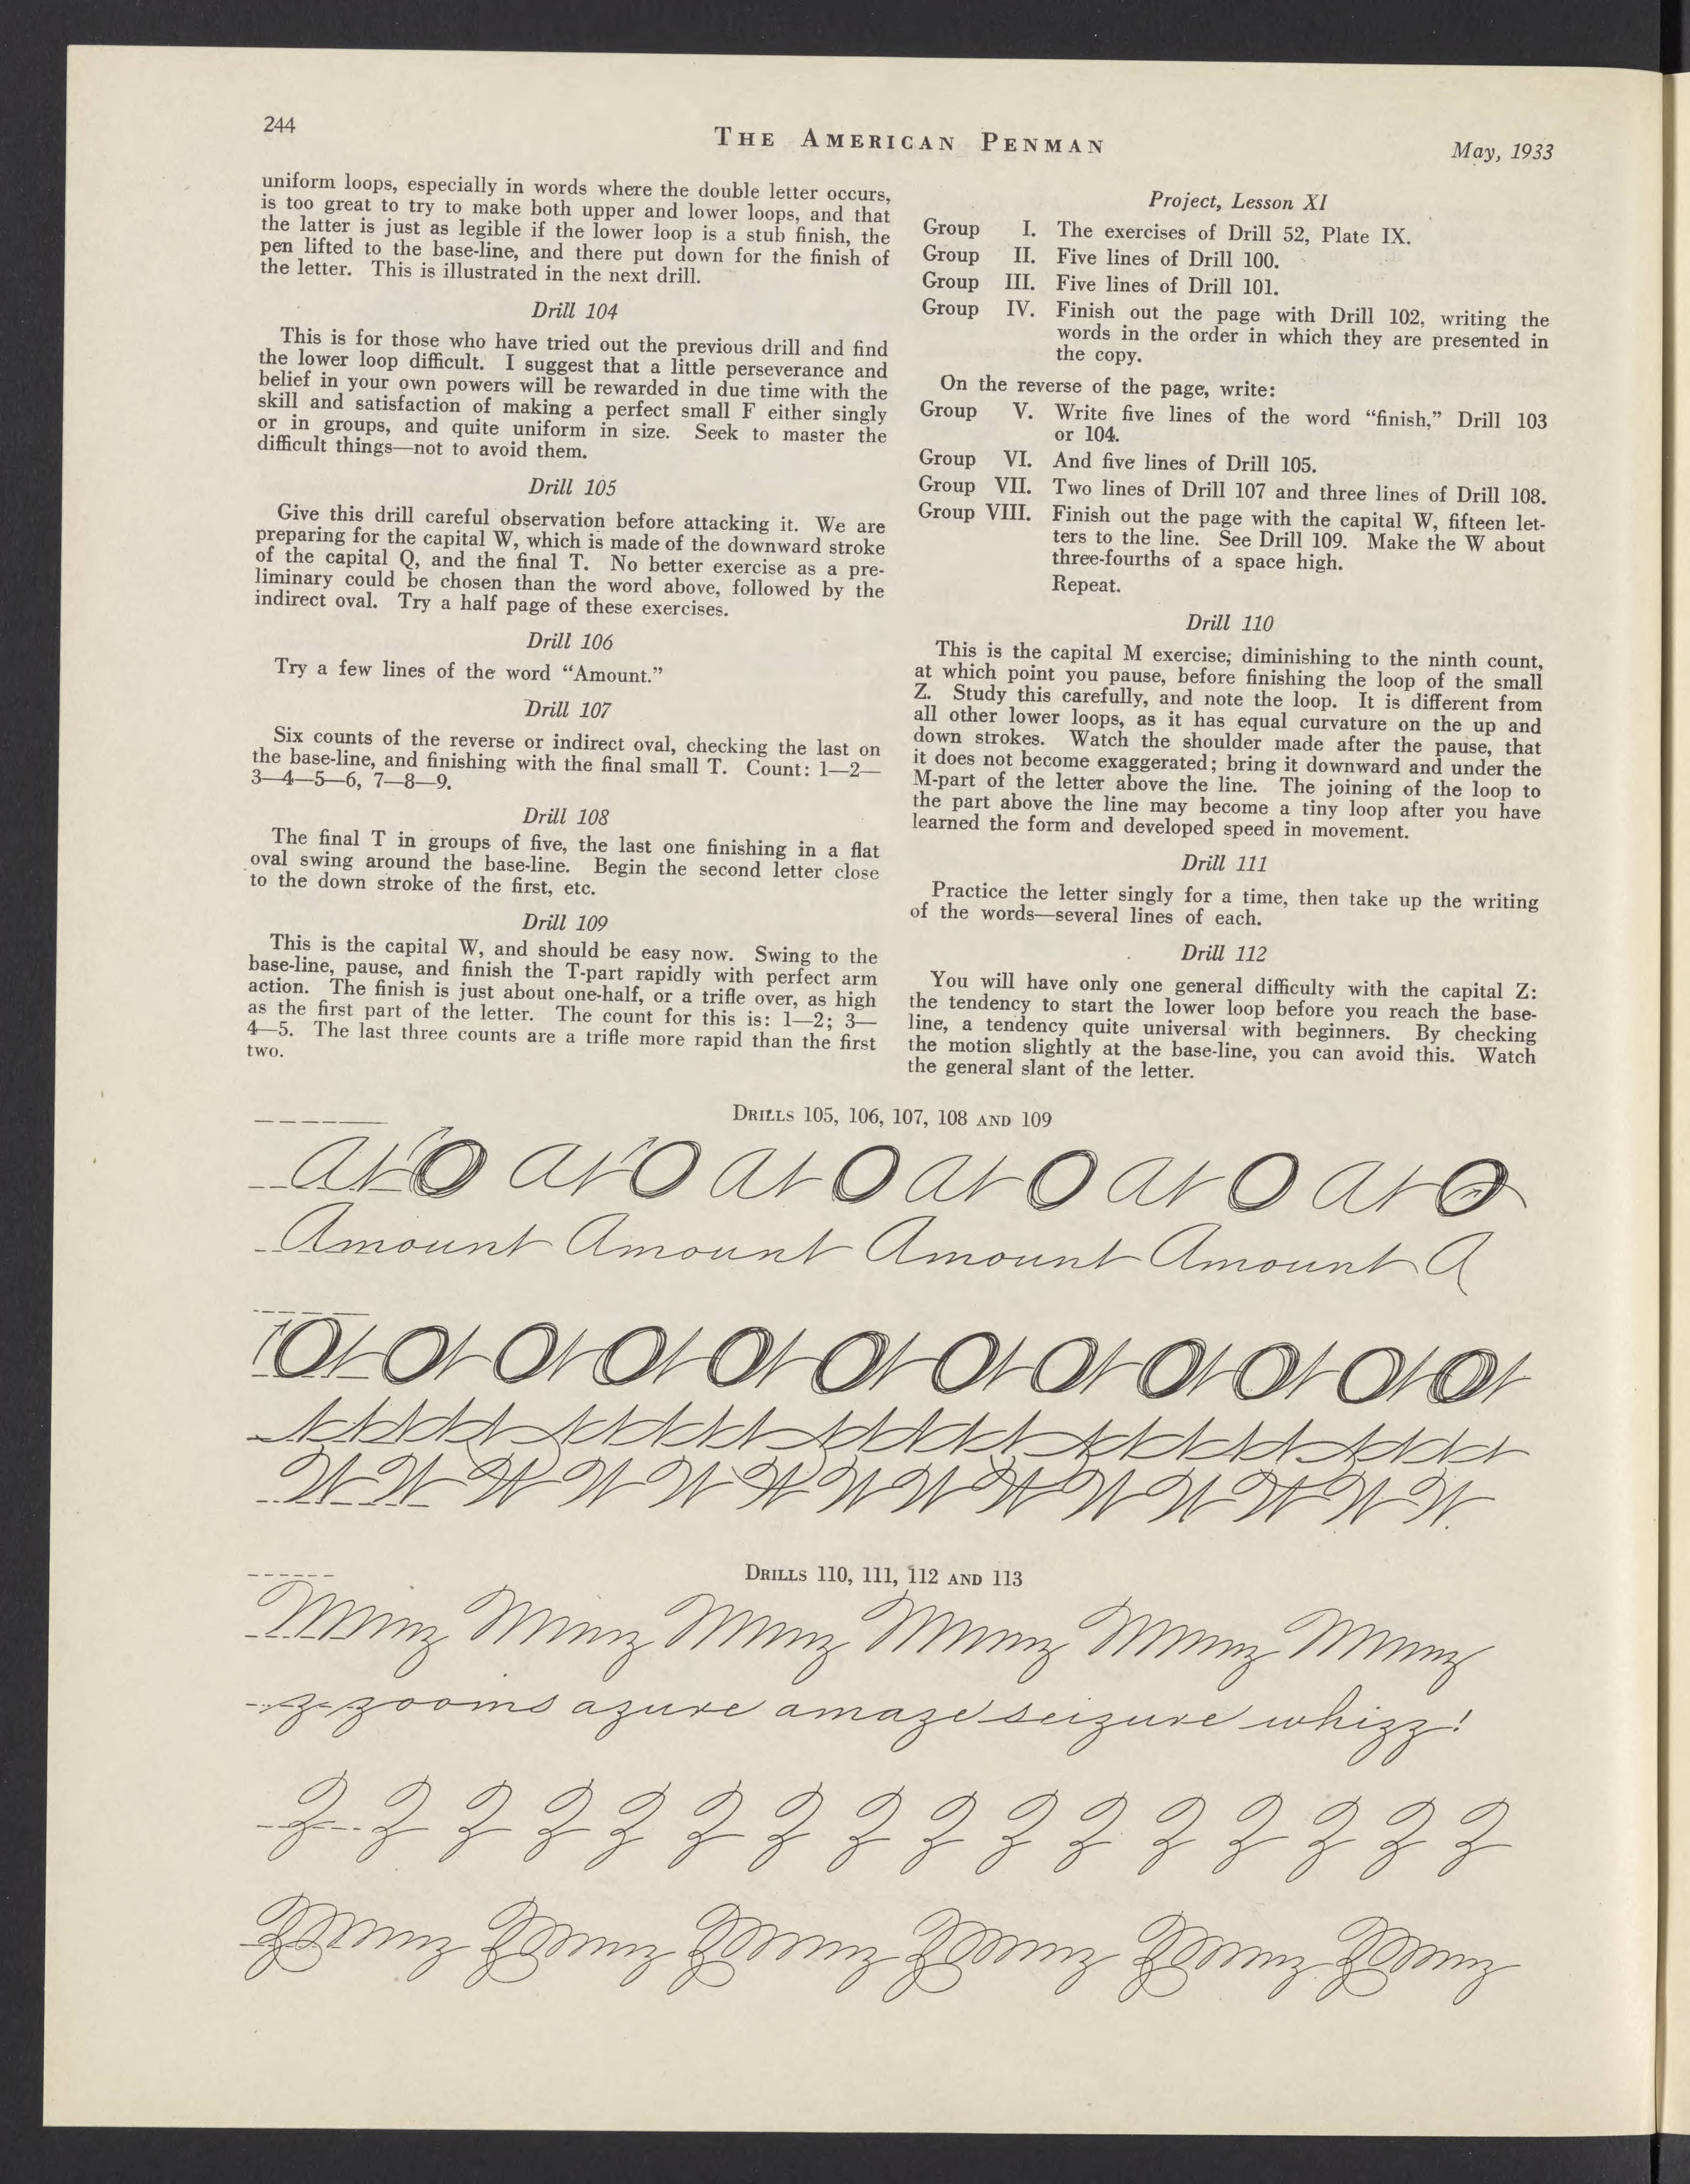 244
THE AMERICAN PENMAN
May, 1933
uniform loops, especially in words where the double letter occurs,
is too great to try to make both upper and lower loops, and that
the latter is just as legible if the lower loop is a stub finish, the
pen lifted to the base-line, and there put down for the finish of
the letter. This is illustrated in the next drill.
Drill 104
This is for those who have tried out the previous drill and find
the lower loop difficult. I suggest that a little perseverance and
belief in your own powers will be rewarded in due time with the
skill and satisfaction of making a perfect small F either singly
or in groups, and quite uniform in size. Seek to master the
difficult things—not to avoid them.
Drill 105
Give this drill careful observation before attacking it. We are
preparing for the capital W, which is made of the downward stroke
of the capital Q, and the final T. No better exercise as a pre-
liminary could be chosen than the word above, followed by the
indirect oval. Try a half page of these exercises.
Drill 106
Try a few lines of the word “Amount.”
Drill 107
Six counts of the reverse or indirect oval, checking the last on
the base-line, and finishing with the final small T. Count: 1—2—
3—4—5—6, 7—8—9.
Drill 108
The final T in groups of five, the last one finishing in a flat
oval swing around the base-line. Begin the second letter close
to the down stroke of the first, etc.
Drill 109
This is the capital W, and should be easy now. Swing to the
base-line, pause, and finish the T-part rapidly with perfect arm
action. The finish is just about one-half, or a trifle over, as high
as the first part of the letter. The count for this is: 1—2; 3—
4—5. The last three counts are a trifle more rapid than the first
two.
Project, Lesson XI
Group I. The exercises of Drill 52, Plate IX.
Group II. Five lines of Drill 100.
Group III. Five lines of Drill 101.
Group IV. Finish out the page with Drill 102, writing the
words in the order in which they are presented in
the copy.
On the reverse of the page, write:
Group V. Write five lines of the word “finish,” Drill 103
or 104.
Group VI. And five lines of Drill 105.
Group VII. Two lines of Drill 107 and three lines of Drill 108.
Group VIII. Finish out the page with the capital W, fifteen let-
ters to the line. See Drill 109. Make the W about
three-fourths of a space high.
Repeat.
Drill 110
This is the capital M exercise; diminishing to the ninth count,
at which point you pause, before finishing the loop of the small
Z. Study this carefully, and note the loop. It is different from
all other lower loops, as it has equal curvature on the up and
down strokes. Watch the shoulder made after the pause, that
it does not become exaggerated; bring it downward and under the
M-part of the letter above the line. The joining of the loop to
the part above the line may become a tiny loop after you have
learned the form and developed speed in movement.
Drill 111
Practice the letter singly for a time, then take up the writing
of the words—several lines of each.
Drill 112
You will have only one general difficulty with the capital Z:
the tendency to start the lower loop before you reach the base-
line, a tendency quite universal with beginners. By checking
the motion slightly at the base-line, you can avoid this. Watch
the general slant of the letter.
DRILLS 105, 106, 107, 108 AND 109
at O at O at O at O at O at O
Amount Amount Amount Amount A
Ot Ot Ot Ot Ot Ot Ot Ot Ot Ot Ot Ot
ttttt ttttt ttttt ttttt ttttt
W W W W W W W W W W W W W W
DRILLS 110, 111, 112 AND 113
z zooms azure amaze seizure whizz!
Z Z Z Z Z Z Z Z Z Z Z Z Z Z Z Z